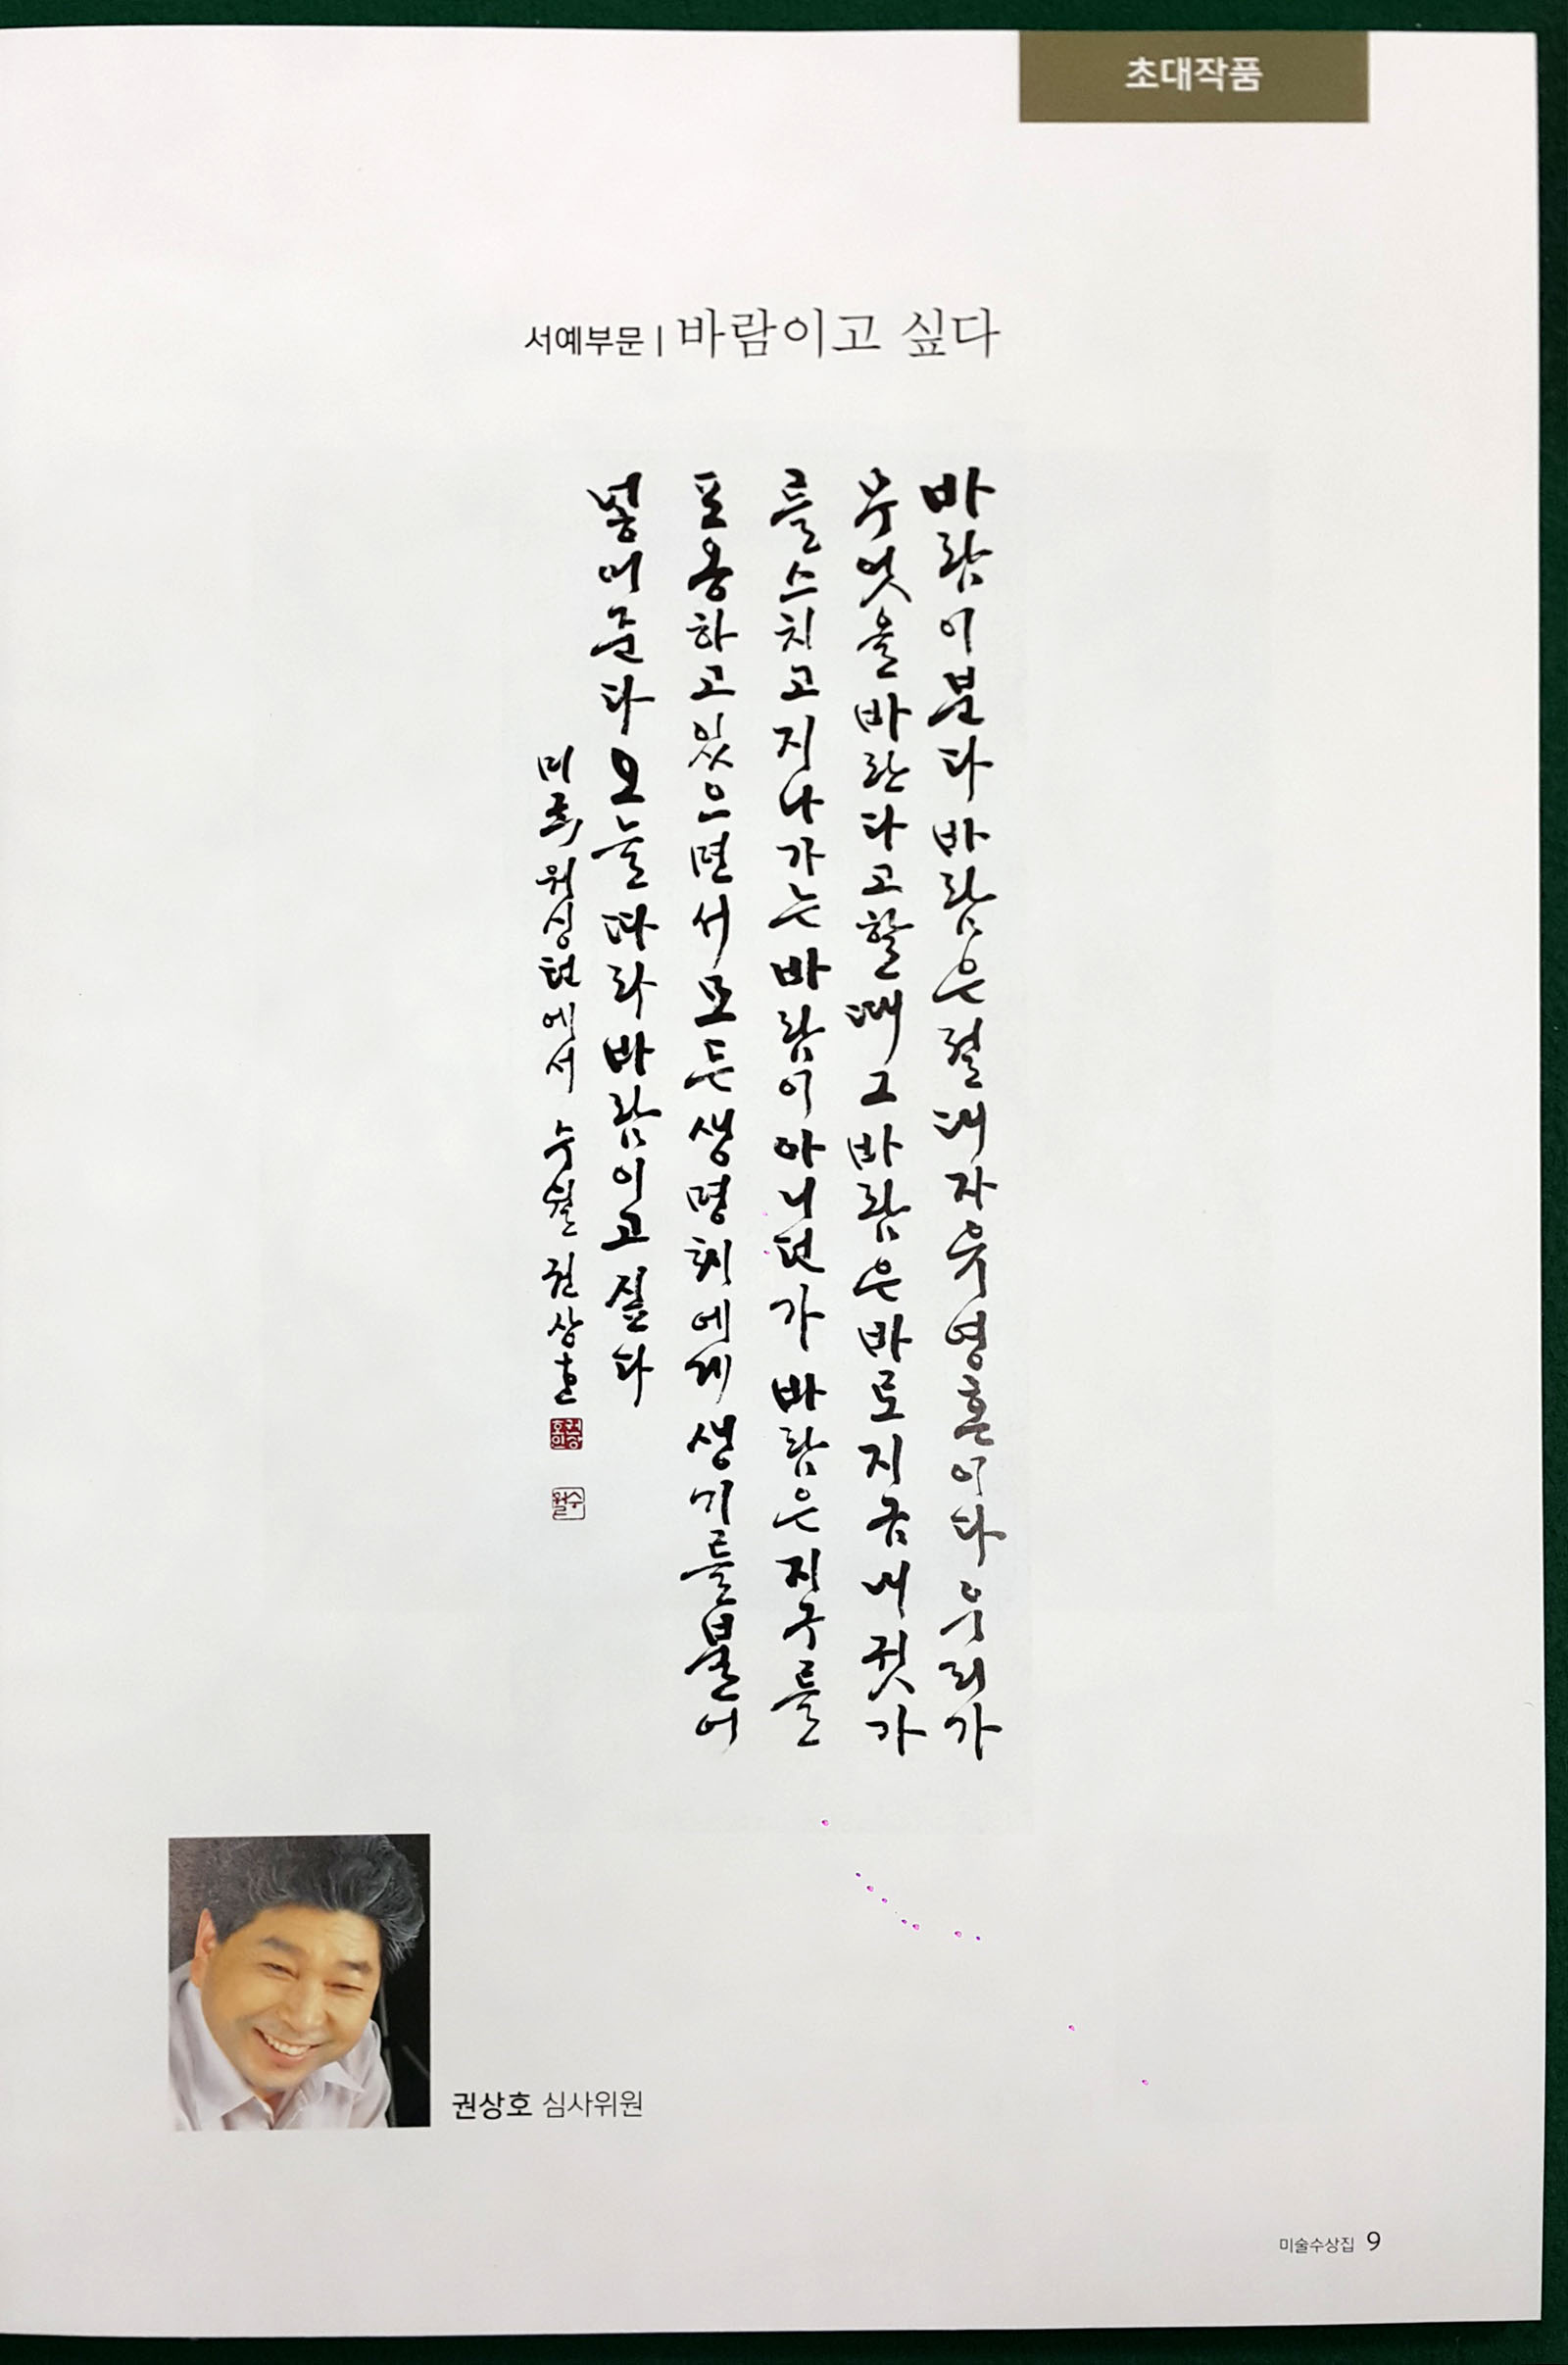 초대작품
서예부문 | 바람이고 싶다
바람이분다바람은절대자유영혼이다우리가
무엇을바란다고할때그바람은바로지금내귓가
를스치고지나가는바람이아니던가바람은지구를
포옹하고있으면서모든생명체에게생기를불어
넣어준다오늘따라바람이고싶다
미국워싱턴에서 수월권상호
수월
권상호 심사위원
미술수상집 9